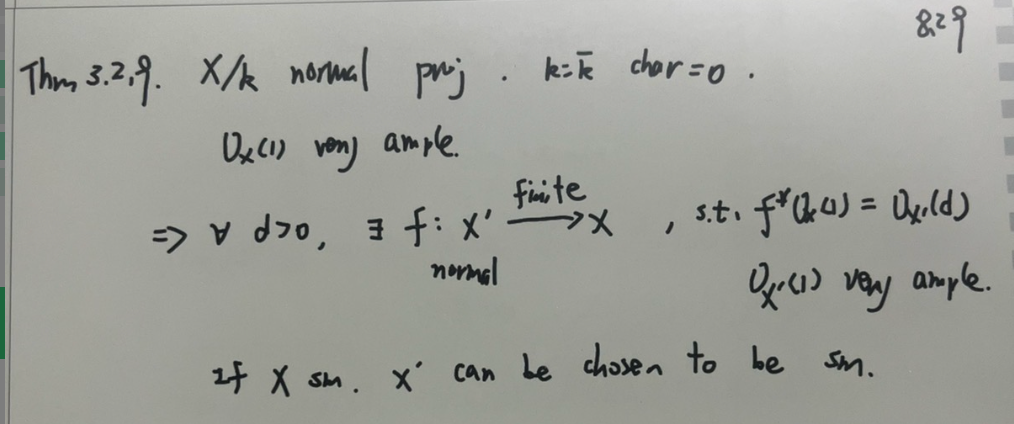 8.29
Thm 3.2.9. X/k normal proj. k=k̄ char=0.
O_X(1) very ample.
⇒ ∀ d>0, ∃ f: X' finite → X, s.t. f*O_X(1) = O_X'(d)
normal O_X'(1) very ample.
If X sm. X' can be chosen to be sm.